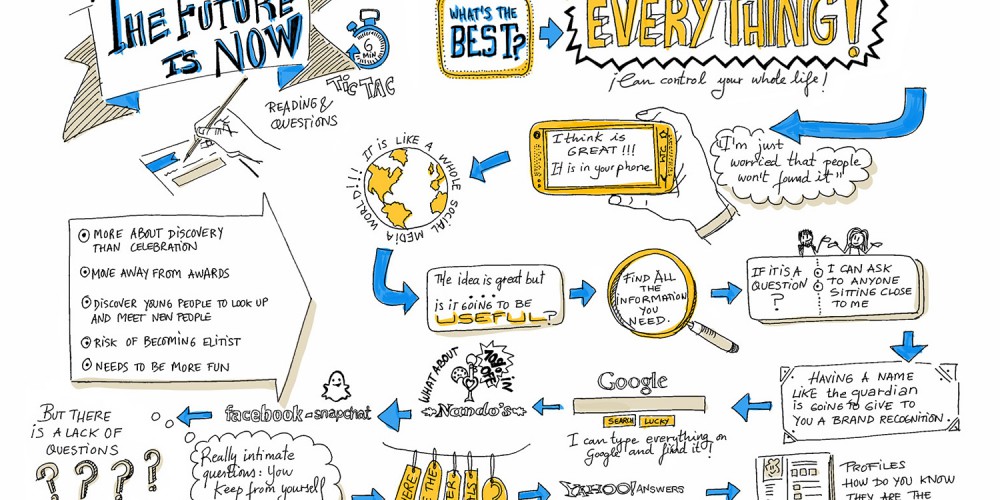 THE FUTURE
IS NOW
6
MIN
TIC TAC
READING &
QUESTIONS
WHAT'S THE
BEST?
EVERYTHING!
¡Can control your whole life!
"I'm just
worried that people
won't found it"
I think is
GREAT!!!
It is in your phone
IT IS LIKE A WHOLE SOCIAL MEDIA WORLD!!!
MORE ABOUT DISCOVERY
THAN CELEBRATION
MOVE AWAY FROM AWARDS
DISCOVER YOUNG PEOPLE TO LOOK UP
AND MEET NEW PEOPLE
RISK OF BECOMING ELITIST
NEEDS TO BE MORE FUN
The idea is great but
...
is it GOING TO BE
USEFUL?
FIND ALL
THE
INFORMATION
YOU
NEED.
IF IT IS A
QUESTION
?
I CAN ASK
TO ANYONE
SITTING CLOSE
TO ME
HAVING A NAME
LIKE the guardian
IS GOING TO GIVE TO
YOU A BRAND RECOGNITION.
Google
SEARCH LUCKY
I can type everything on
Google and find it!
WHAT ABOUT
Nando's
facebook - snapchat
BUT THERE
IS A LACK OF
QUESTIONS
? ? ? ?
Really intimate
questions: You
Keep from yourself
YAHOO! ANSWERS
PROFILES
HOW DO YOU KNOW
THEY ARE THE